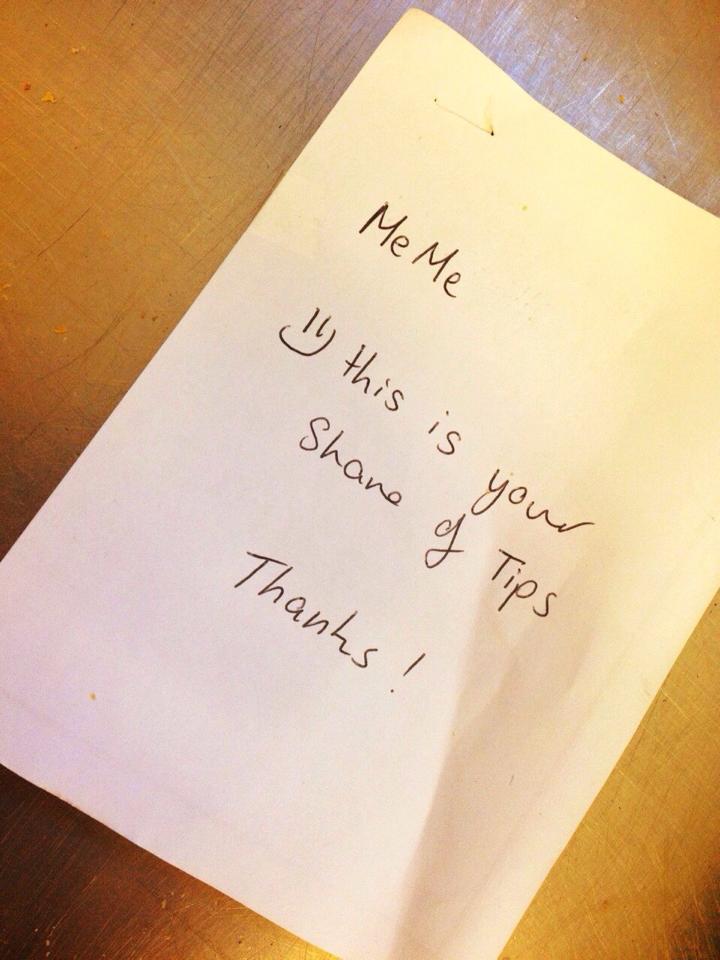 MeMe
this is your
Share of Tips
Thanks!